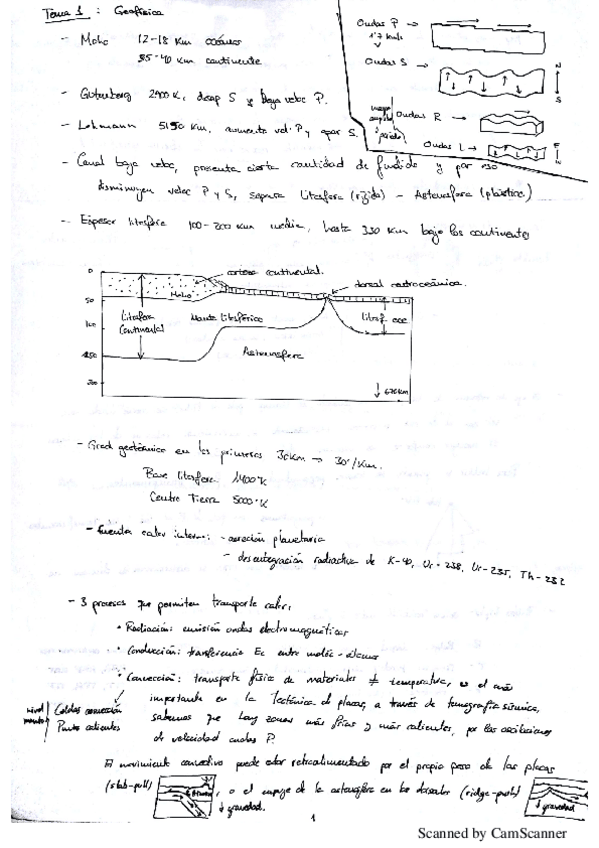 Tema 1 : Geofísica
- Moho 12-18 Km océanos
35-40 Km continente
- Gutenberg 2900 K, desap S y baja veloc P.
- Lehmann 5150 Km, aumenta vel. P y apar S.
Ondas P →
Ondas S →
N
S
Ondas R →
Ondas L →
- Canal baja veloc, presenta cierta cantidad de fundido y por eso
disminuyen veloc P y S, separa litosfera (rígida) - Astenosfera (plástica)
- Espesor litosfera 100-200 Km media, hasta 330 Km bajo los continentes
0
corteza continental.
dorsal centroceánica.
50
Moho
Litosfera
Continental
Manto litosférico
litosf oce
100
Astenosfera
150
200
↓ 670 Km
- Grad geotérmico en los primeros 30 Km → 30°/Km.
Base litosfera 1400°K
Centro Tierra 5000°K
- Fuentes calor interno: - acreción planetaria
- desintegración radiactiva de K-40, Ur-238, Ur-235, Th-232
- 3 procesos que permiten transporte calor:
• Radiación: emisión ondas electromagnéticas
• Conducción: transferencia Ec entre moléc-átomos
• Convección: transporte físico de materiales ≠ temperatura, es el más
importante en la Tectónica de placas, a través de tomografía sísmica,
Celdas convección
sabemos que hay zonas más frías y más calientes, por las oscilaciones
Puntos calientes
de velocidad ondas P.
El movimiento convectivo puede estar retroalimentado por el propio peso de las placas
(slab-pull)
, o el empuje de la astenosfera en las dorsales (ridge-push)
↓ gravedad.
↓ gravedad
1
Scanned by CamScanner